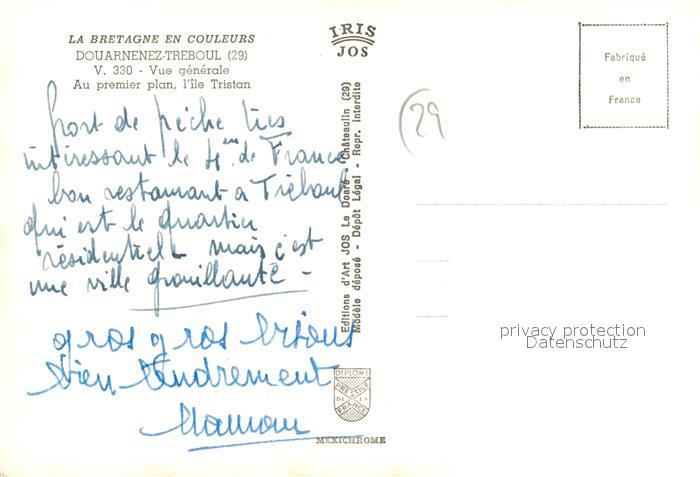 LA BRETAGNE EN COULEURS
DOUARNENEZ-TREBOUL (29)
V. 330 - Vue générale
Au premier plan, l'île Tristan
port de pêche très
intéressant le 4ème de France
bon restaurant à Tréboul
qui est le quartier
résidentiel - mais c'est
une ville grouillante -
gros gros bisous
bien tendrement
Maman
IRIS
JOS
Editions d'Art JOS Le Doaré - Châteaulin (29)
Modèle déposé - Dépôt Légal - Repr. interdite
DIPLOME
PRESTIGE
DE LA
FRANCE
MEXICHROME
Fabriqué
en
France
(29
privacy protection
Datenschutz